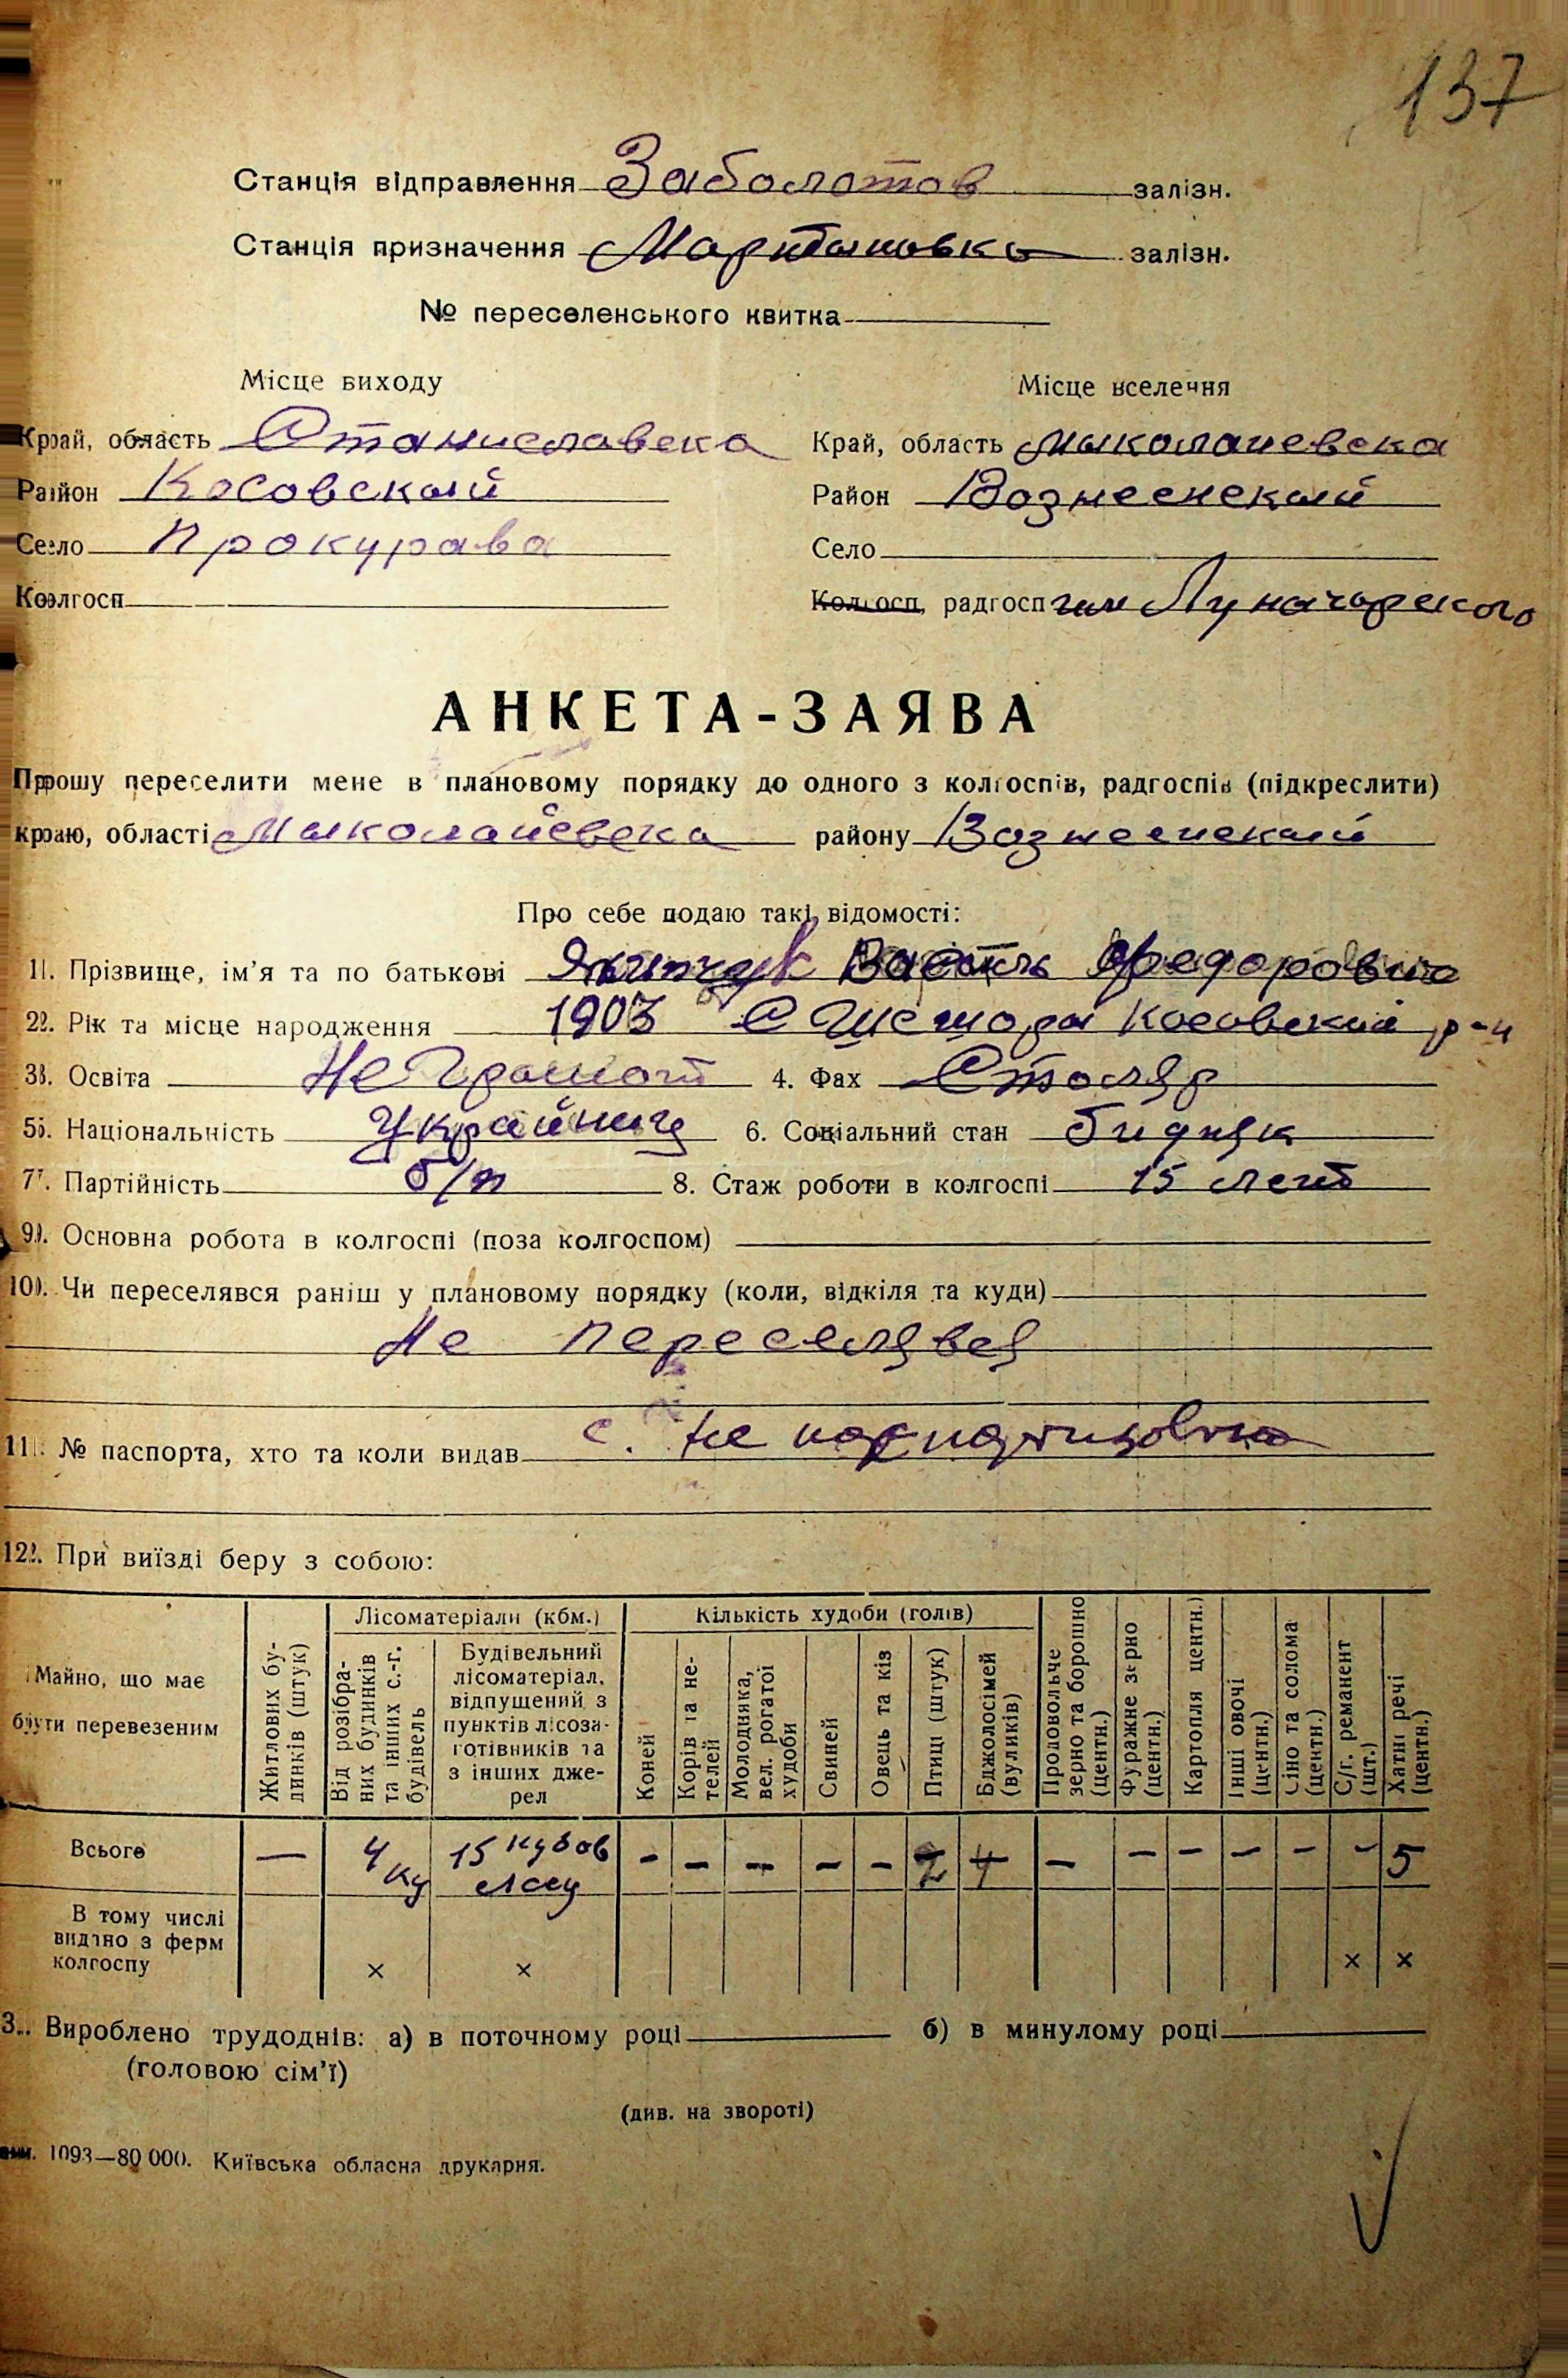 137
Станція відправлення Заболотов залізн.
Станція призначення Мартыновка залізн.
№ переселенського квитка
Місце виходу
Місце вселення
Край, область Станиславска
Край, область Миколаиевска
Район Косовский
Район Вознесенский
Село Прокурава
Село
Колгосп
Колгосп, радгосп им Луначарского
АНКЕТА-ЗАЯВА
Прошу переселити мене в плановому порядку до одного з колгоспів, радгоспів (підкреслити)
краю, області Миколайевска району Вознесенский
Про себе подаю такі відомості:
1. Прізвище, ім’я та по батькові Якипчук Василь Федорович
2. Рік та місце народження 1903 С Шешоры Косовский р-н
3. Освіта Не Грамот 4. Фах Столяр
5. Національність Украйниц 6. Соціальний стан бидняк
7. Партійність б/п 8. Стаж роботи в колгоспі 15 лет
9. Основна робота в колгоспі (поза колгоспом)
10. Чи переселявся раніш у плановому порядку (коли, відкіля та куди)
Не переселявся
11. № паспорта, хто та коли видав с. не
12. При виїзді беру з собою:
Майно, що має бути перевезеним
Житлових будинків (штук)
Лісоматеріали (кбм.)
Від розібраних будинків та інших с.-г. будівель
Будівельний лісоматеріал, відпущений з пунктів лісозаготівників та з інших джерел
Кількість худоби (голів)
Коней
Корів та нетелей
Молодняка, вел. рогатої худоби
Свиней
Овець та кіз
Птиці (штук)
Бджолосімей (вуликів)
Продовольче зерно та борошно (центн.)
Фуражне зерно (центн.)
Картопля центн.)
Інші овочі (центн.)
Сіно та солома (центн.)
С/г. реманент (шт.)
Хатні речі (центн.)
Всього — 4 ку 15 кубов лесу - - - - - - — - - - - - 5
В тому числі видано з ферм колгоспу × × × ×
3. Вироблено трудоднів: а) в поточному році б) в минулому році
(головою сім’ї)
(див. на звороті)
1093—80 000. Київська обласна друкарня.